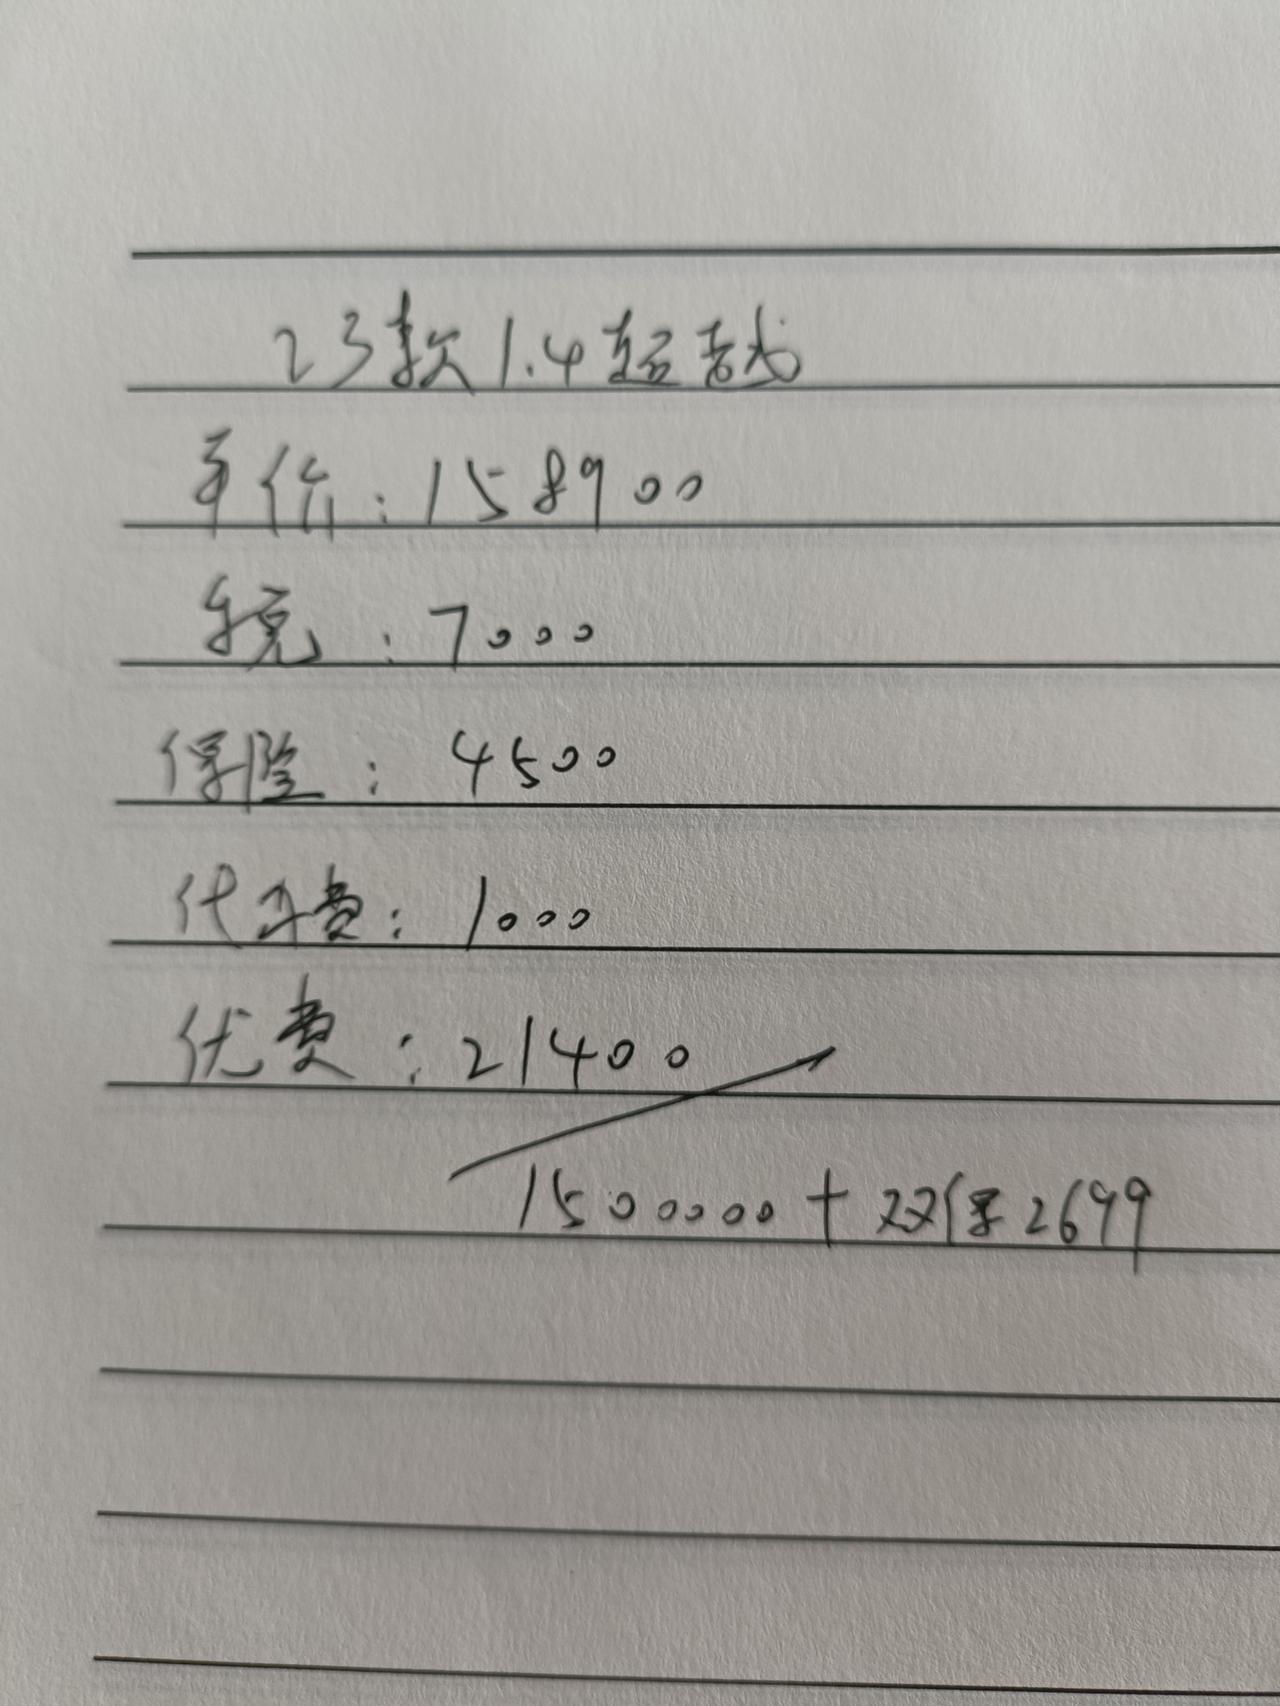 23款1.4超越
车价:158900
车税:7000
保险:4500
代办费:1000
优惠:21400
1500000+双保2699